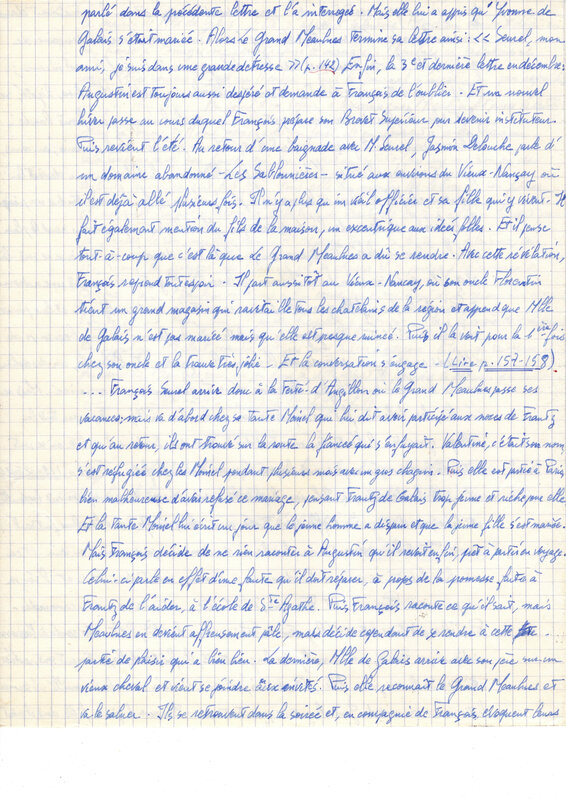 parlé dans la précédente lettre et l'a interrogée. Mais elle lui a appris qu'Yvonne de
Galais s'était mariée. Alors Le Grand Meaulnes termine sa lettre ainsi : << Seurel, mon
ami, je suis dans une grande détresse >> (p. 142) Enfin, la 3e et dernière lettre en décembre :
Augustin est toujours aussi désespéré et demande à François de l'oublier. Et un nouvel
hiver passe au cours duquel François prépare son Brevet Supérieur pour devenir instituteur.
Puis revient l'été. Au retour d'une baignade avec M. Seurel, Jasmin Delouche parle d'
un domaine abandonné - Les Sablonnières - situé aux environs du Vieux-Nançay où
il est déjà allé plusieurs fois. Il n'y a plus qu'un vieil officier et sa fille qui y vivent. Il
fait également mention du fils de la maison, un excentrique aux idées folles. Et il pense
tout-à-coup que c'est là que Le Grand Meaulnes a dû se rendre. Avec cette révélation,
François reprend tout espoir. Il part aussitôt au Vieux-Nançay, où son oncle Florentin
tient un grand magasin qui ravitaille tous les châtelains de la région et apprend que Mlle
de Galais n'est pas mariée mais qu'elle est presque ruinée. Puis il la voit pour la 1ère fois
chez son oncle et la trouve très jolie. Et la conversation s'engage. (Lire p. 157-158)
... François Seurel arrive donc à la Ferté-d'Angillon où le Grand Meaulnes passe ses
vacances, mais va d'abord chez sa tante Moinel qui lui dit avoir participé aux noces de Frantz
et qu'au retour, ils ont trouvé sur la route la fiancée qui s'enfuyait. Valentine, c'était son nom,
s'est réfugiée chez les Moinel pendant plusieurs mois avec un gros chagrin. Puis elle est partie à Paris,
bien malheureuse d'avoir refusé ce mariage, pensant Frantz de Galais trop jeune et riche pour elle.
Et la tante Moinel lui écrit un jour que le jeune homme a disparu et que la jeune fille s'est mariée.
Mais François décide de ne rien raconter à Augustin qu'il revoit enfin, prêt à partir en voyage.
Celui-ci parle en effet d'une faute qu'il doit réparer, à propos de la promesse faite à
Frantz de l'aider, à l'école de Ste Agathe. Puis François raconte ce qu'il sait, mais
Meaulnes en devient affreusement pâle, mais décide cependant de se rendre à cette
partie de plaisir qui a bien lieu. La dernière, Mlle de Galais arrive avec son père sur un
vieux cheval et vient se joindre aux invités. Puis elle reconnaît le Grand Meaulnes et
va le saluer. Ils se retrouvent dans la soirée et, en compagnie de François, évoquent leurs